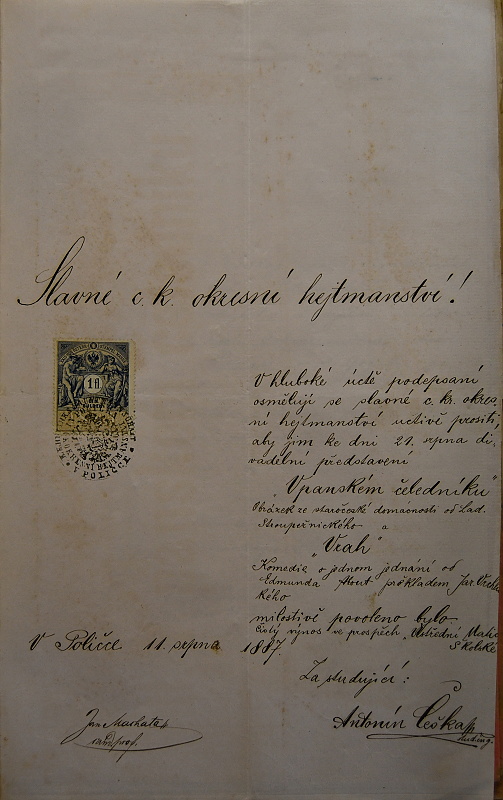 Slavné c. k. okresní hejtmanství!
1 fl
V POLIČCE
V hluboké úctě podepsaní
osmělují se slavné c. kr. okres-
ní hejtmanství uctivě prositi,
aby jim ke dni 21. srpna di-
vadelní představení
„V panském čeledníku"
Obrázek ze staročeské domácnosti od Lad.
Stroupežnického a
„Vrah"
Komedie o jednom jednání od
Edmunda About překladem Jar. Vrchlic-
kého
milostivě povoleno bylo.
Čistý výnos ve prospěch „Ústřední Matice
Školské
V Poličce 11. srpna 1887.
Za studující:
Antonín Češka
Jan